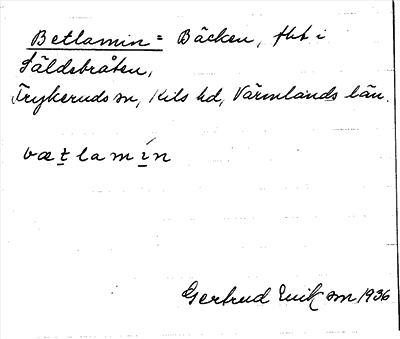 Betlamin = Bäcken, fht i
Säldebråten,
Frykeruds sn, Kils hd, Värmlands län.
væt lam ín
Gertrud Eriksson 1936